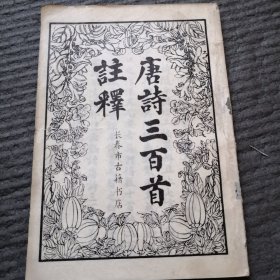 唐詩三百首
註釋
长春市古籍书店